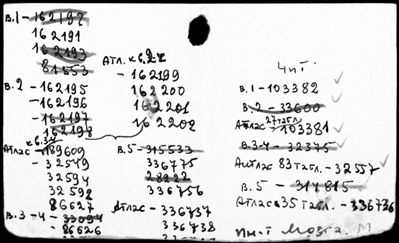 в.1 - 162192
162191
162193
81553
в.2 - 162195
- 162196
- 162197
162198
Атлас к 6.34
- 189609
- 32549
32594
32592
86627
в.3-4 - 33094
- 86626
Атл. к в.2
- 162199
162200
162201
162202
в.5 - 315533
336775
28222
336756
Атлас - 336737
336738
Чит
в.1 - 103382
в.2 - 33600
Атлас 27 табл. - 103381
в.3-4 - 32375
Атлас 83 табл. - 32557
в.5 - 314815
Атлас 35 табл. - 336736
Ин-т Мозга. М